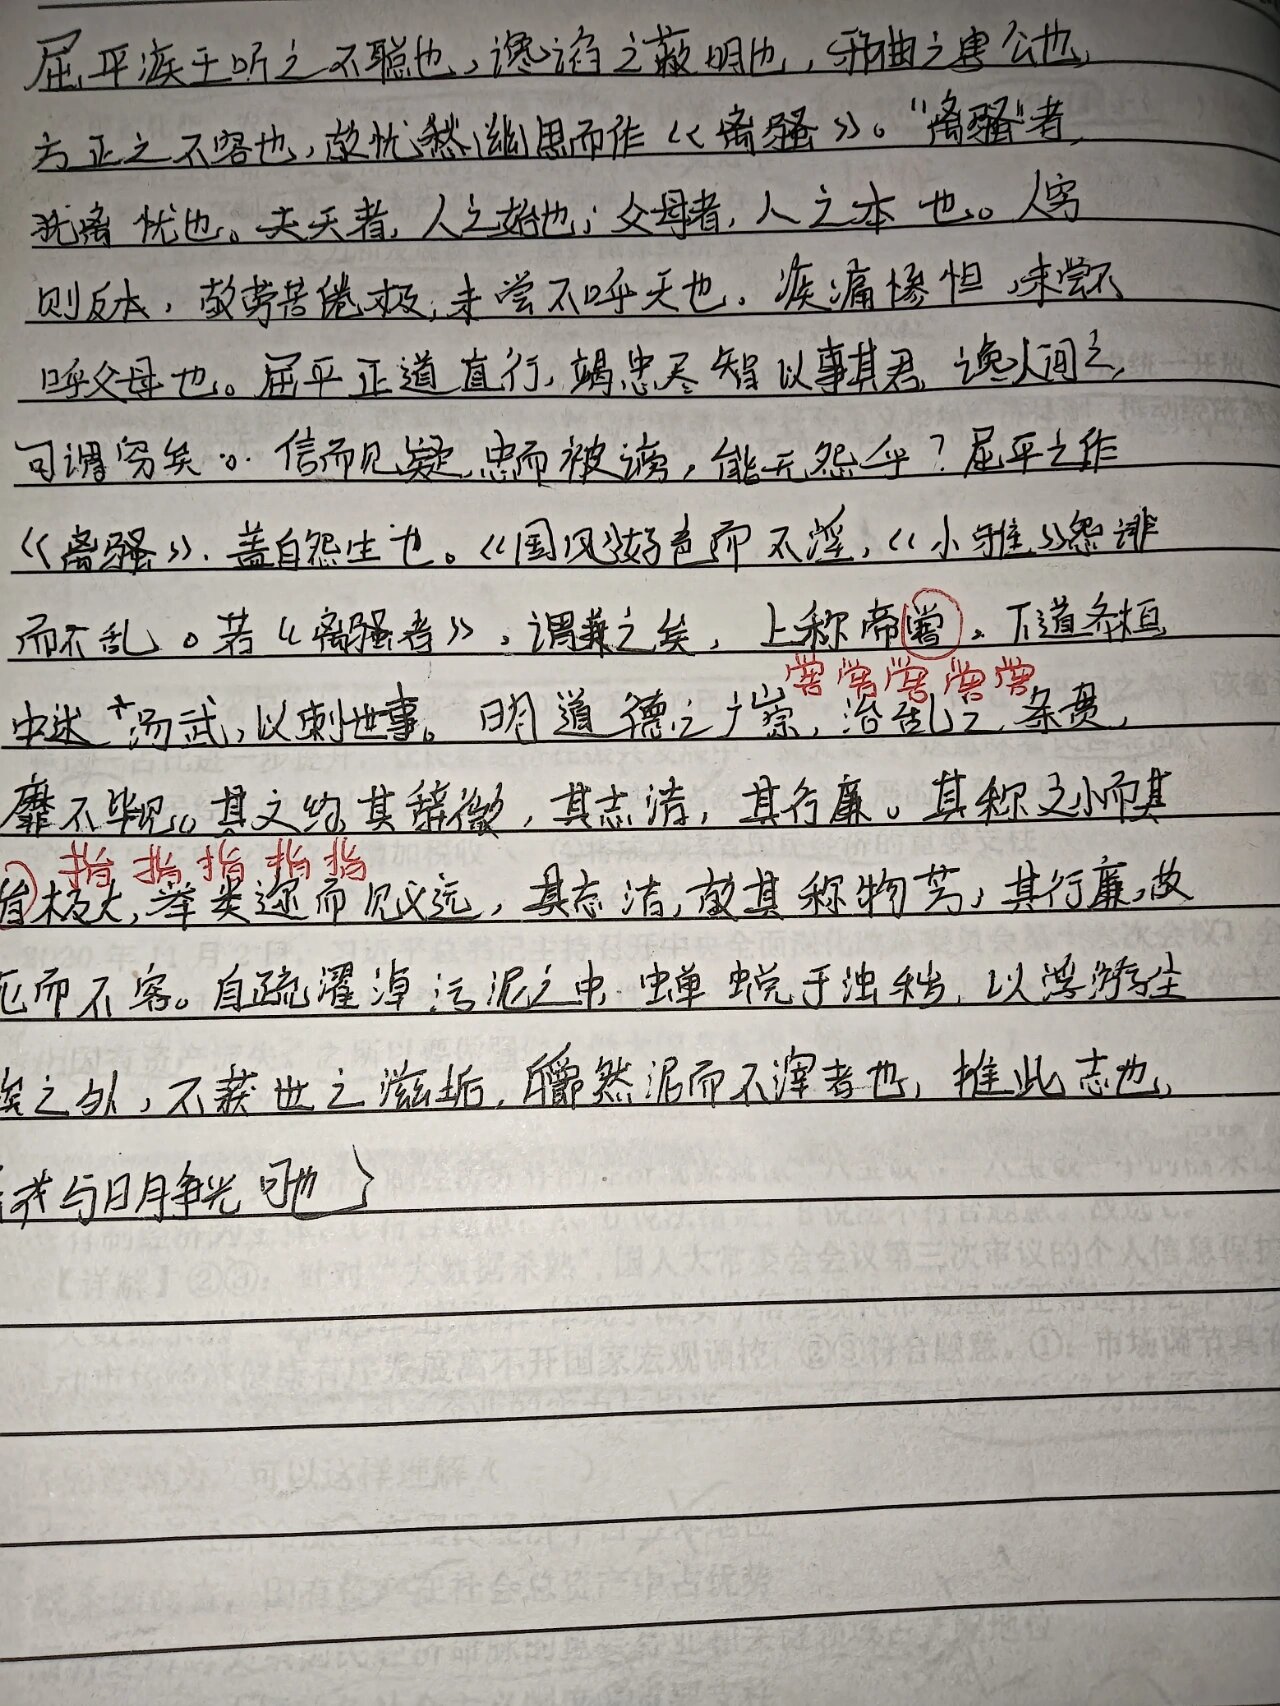 屈平疾王听之不聪也，谗谄之蔽明也，邪曲之害公也，
方正之不容也，故忧愁幽思而作《离骚》。“离骚”者，
犹离忧也。夫天者，人之始也；父母者，人之本也。人穷
则反本，故劳苦倦极，未尝不呼天也，疾痛惨怛，未尝不
呼父母也。屈平正道直行，竭忠尽智以事其君，谗人间之，
可谓穷矣。信而见疑，忠而被谤，能无怨乎？屈平之作
《离骚》，盖自怨生也。《国风》好色而不淫，《小雅》怨诽
而不乱。若《离骚者》，谓兼之矣，上称帝喾，下道齐桓
喾喾喾喾喾
中述汤武，以刺世事。明道德之广崇，治乱之条贯，
靡不毕见。其文约，其辞微，其志洁，其行廉。其称文小而其
指指指指指
极大，举类迩而见义远，其志洁，故其称物芳，其行廉，故
死而不容。自疏濯淖污泥之中，蝉蜕于浊秽，以浮游尘
埃之外，不获世之滋垢，皭然泥而不滓者也，推此志也，
我与日月争光可也}